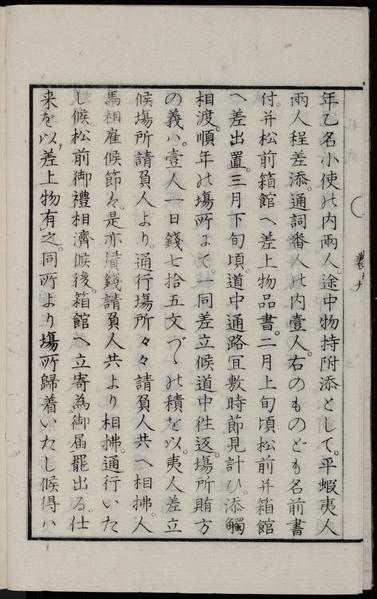 年乙名小使の内両人。途中物持附添として。平蝦夷人
両人程差添。通詞番人の内壹人。右のものども名前書
付并松前箱館へ差上物品書。二月上旬頃松前并箱館
へ差出置。三月下旬頃。道中通路宜敷時節見計ひ。添觸
相渡。順年の場所にて。一同差立候道中往返。場所賄方
の義ハ。壹人一日錢七拾五文づゝの積を以。夷人差立
候場所請負人より。通行場所々々請負人共へ相拂。人
馬相雇候節も。是亦賃錢請負人共より相拂。通行いた
し候。松前御禮相濟候後。箱館へ立寄為御届罷出る。仕
来を以。差上物有之。同所より場所歸着いたし候得ハ